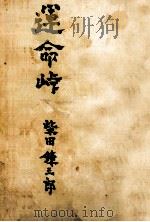 運命峠
柴田錬三郎